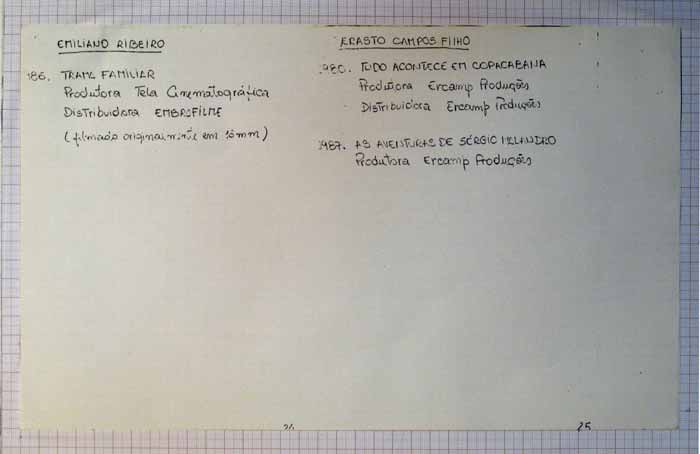 EMILIANO RIBEIRO
186. TRAMA FAMILIAR
Produtora Tela Cinematográfica
Distribuidora EMBRAFILME
(filmado originalmente em 16mm)
24
ERASTO CAMPOS FILHO
1980. TUDO ACONTECE EM COPACABANA
Produtora Ercamp Produções
Distribuidora Ercamp Produções
1987. AS AVENTURAS DE SÉRGIO MALANDRO
Produtora Ercamp Produções
25